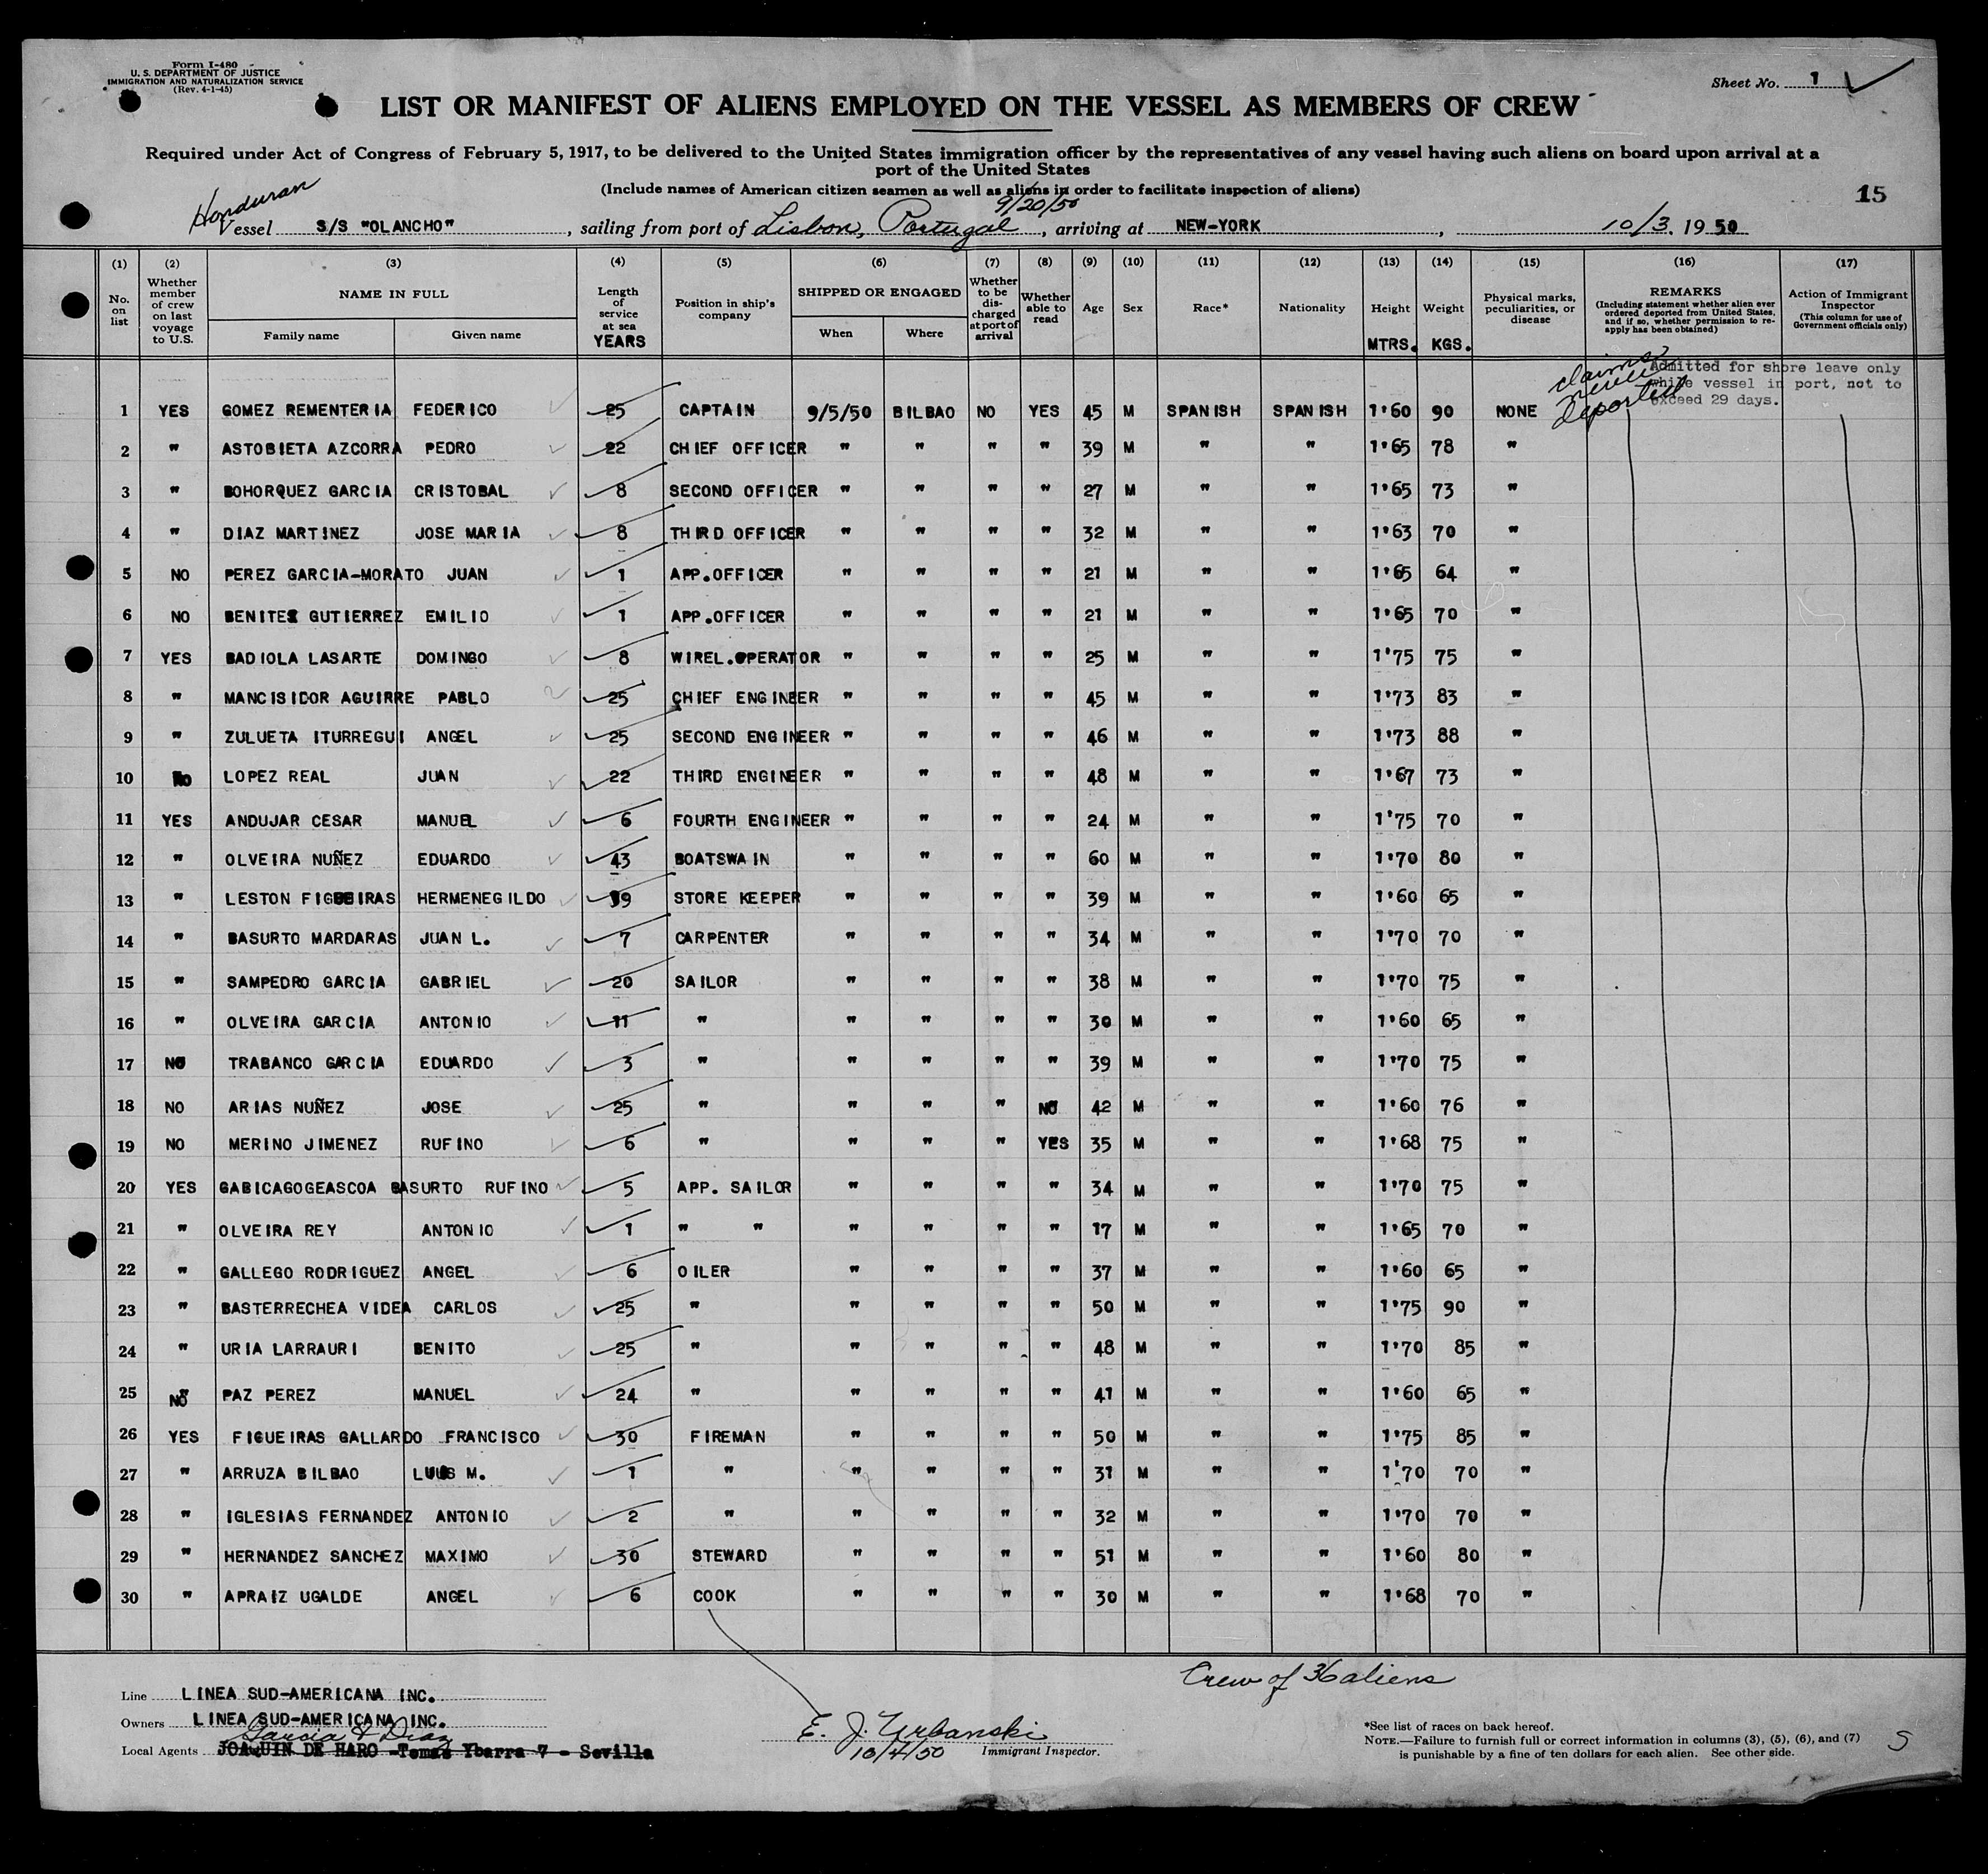 Form I-480
U. S. DEPARTMENT OF JUSTICE
IMMIGRATION AND NATURALIZATION SERVICE
(Rev. 4-1-45)
Sheet No. 1
LIST OR MANIFEST OF ALIENS EMPLOYED ON THE VESSEL AS MEMBERS OF CREW
Required under Act of Congress of February 5, 1917, to be delivered to the United States immigration officer by the representatives of any vessel having such aliens on board upon arrival at a
port of the United States
(Include names of American citizen seamen as well as aliens in order to facilitate inspection of aliens)
15
Honduran
9/20/50
Vessel S/S "OLANCHO", sailing from port of Lisbon, Portugal, arriving at NEW-YORK, 10/3. 1950
(1) (2) (3) (4) (5) (6) (7) (8) (9) (10) (11) (12) (13) (14) (15) (16) (17)
No. on list
Whether member of crew on last voyage to U.S.
NAME IN FULL
Family name Given name
Length of service at sea YEARS
Position in ship's company
SHIPPED OR ENGAGED
When Where
Whether to be discharged at port of arrival
Whether able to read
Age
Sex
Race*
Nationality
Height MTRS.
Weight KGS.
Physical marks, peculiarities, or disease
REMARKS
(Including statement whether alien ever ordered deported from United States, and if so, whether permission to reapply has been obtained)
Action of Immigrant Inspector
(This column for use of Government officials only)
claims never deported
Admitted for shore leave only
while vessel in port, not to
exceed 29 days.
1 YES GOMEZ REMENTERIA FEDERICO 25 CAPTAIN 9/5/50 BILBAO NO YES 45 M SPANISH SPANISH 1'60 90 NONE
2 " ASTOBIETA AZCORRA PEDRO 22 CHIEF OFFICER " " " " 39 M " " 1'65 78 "
3 " BOHORQUEZ GARCIA CRISTOBAL 8 SECOND OFFICER " " " " 27 M " " 1'65 73 "
4 " DIAZ MARTINEZ JOSE MARIA 8 THIRD OFFICER " " " " 32 M " " 1'63 70 "
5 NO PEREZ GARCIA-MORATO JUAN 1 APP.OFFICER " " " " 21 M " " 1'65 64 "
6 NO BENITEZ GUTIERREZ EMILIO 1 APP.OFFICER " " " " 21 M " " 1'65 70 "
7 YES BADIOLA LASARTE DOMINGO 8 WIREL.OPERATOR " " " " 25 M " " 1'75 75 "
8 " MANCISIDOR AGUIRRE PABLO 25 CHIEF ENGINEER " " " " 45 M " " 1'73 83 "
9 " ZULUETA ITURREGUI ANGEL 25 SECOND ENGINEER " " " " 46 M " " 1'73 88 "
10 No LOPEZ REAL JUAN 22 THIRD ENGINEER " " " " 48 M " " 1'67 73 "
11 YES ANDUJAR CESAR MANUEL 6 FOURTH ENGINEER " " " " 24 M " " 1'75 70 "
12 " OLVEIRA NUÑEZ EDUARDO 43 BOATSWAIN " " " " 60 M " " 1'70 80 "
13 " LESTON FIGUEIRAS HERMENEGILDO 19 STORE KEEPER " " " " 39 M " " 1'60 65 "
14 " BASURTO MARDARAS JUAN L. 7 CARPENTER " " " " 34 M " " 1'70 70 "
15 " SAMPEDRO GARCIA GABRIEL 20 SAILOR " " " " 38 M " " 1'70 75 "
16 " OLVEIRA GARCIA ANTONIO 11 " " " " " 30 M " " 1'60 65 "
17 NO TRABANCO GARCIA EDUARDO 3 " " " " " 39 M " " 1'70 75 "
18 NO ARIAS NUÑEZ JOSE 25 " " " " NO 42 M " " 1'60 76 "
19 NO MERINO JIMENEZ RUFINO 6 " " " " YES 35 M " " 1'68 75 "
20 YES GABICAGOGEASCOA BASURTO RUFINO 5 APP. SAILOR " " " " 34 M " " 1'70 75 "
21 " OLVEIRA REY ANTONIO 1 " " " " " " 17 M " " 1'65 70 "
22 " GALLEGO RODRIGUEZ ANGEL 6 OILER " " " " 37 M " " 1'60 65 "
23 " BASTERRECHEA VIDEA CARLOS 25 " " " " " 50 M " " 1'75 90 "
24 " URIA LARRAURI BENITO 25 " " " " " 48 M " " 1'70 85 "
25 NO PAZ PEREZ MANUEL 24 " " " " " 41 M " " 1'60 65 "
26 YES FIGUEIRAS GALLARDO FRANCISCO 30 FIREMAN " " " " 50 M " " 1'75 85 "
27 " ARRUZA BILBAO LUIS M. 1 " " " " " 31 M " " 1'70 70 "
28 " IGLESIAS FERNANDEZ ANTONIO 2 " " " " " 32 M " " 1'70 70 "
29 " HERNANDEZ SANCHEZ MAXIMO 30 STEWARD " " " " 51 M " " 1'60 80 "
30 " APRAIZ UGALDE ANGEL 6 COOK " " " " 30 M " " 1'68 70 "
Crew of 36 aliens
Line LINEA SUD-AMERICANA INC.
Owners LINEA SUD-AMERICANA INC.
Garcia & Diaz
Local Agents JOAQUIN DE HARO -Tomas Ybarra 7 - Sevilla
E. J. Urbanski
10/4/50 Immigrant Inspector.
*See list of races on back hereof.
NOTE.—Failure to furnish full or correct information in columns (3), (5), (6), and (7)
is punishable by a fine of ten dollars for each alien. See other side.
S